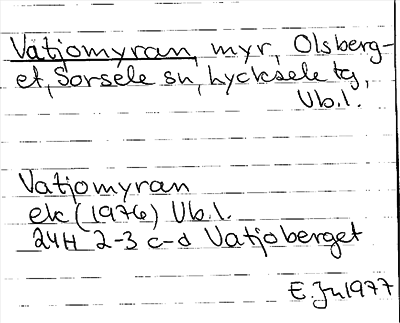 Vatjomyran, myr, Olsberg-
et, Sorsele sn, Lycksele tg,
Vb.l.
Vatjomyran
ek (1976) Vb.l.
24H 2-3 c-d Vatjoberget
E. Jn 1977